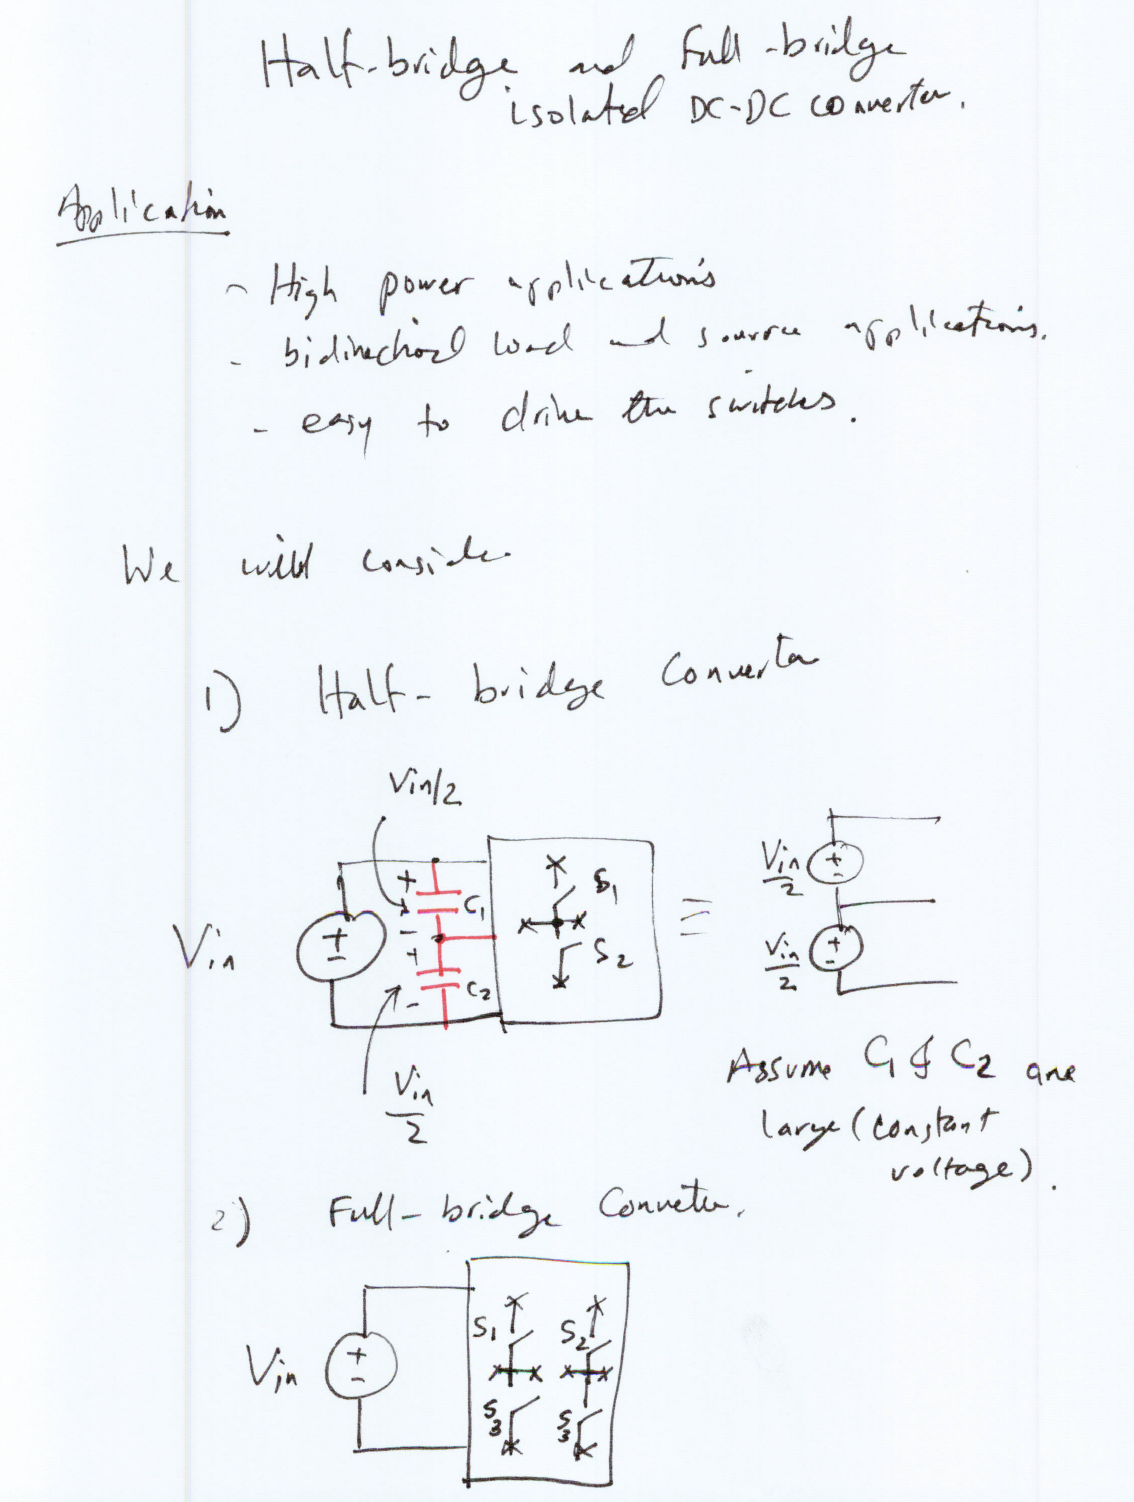 Half-bridge and Full-bridge
isolated DC-DC converter.
Application
- High power applications
- bidirectional load and source applications.
- easy to drive the switches.
We will consider
1) Half-bridge Converter
Vin/2
Vin
+
-
+
-
C1
+
-
C2
S1
S2
≡
Vin/2
+
-
Vin/2
+
-
Vin/2
Assume C1 & C2 are
large (constant
voltage).
2) Full-bridge Converter.
Vin
+
-
S1
S2
S3
S3